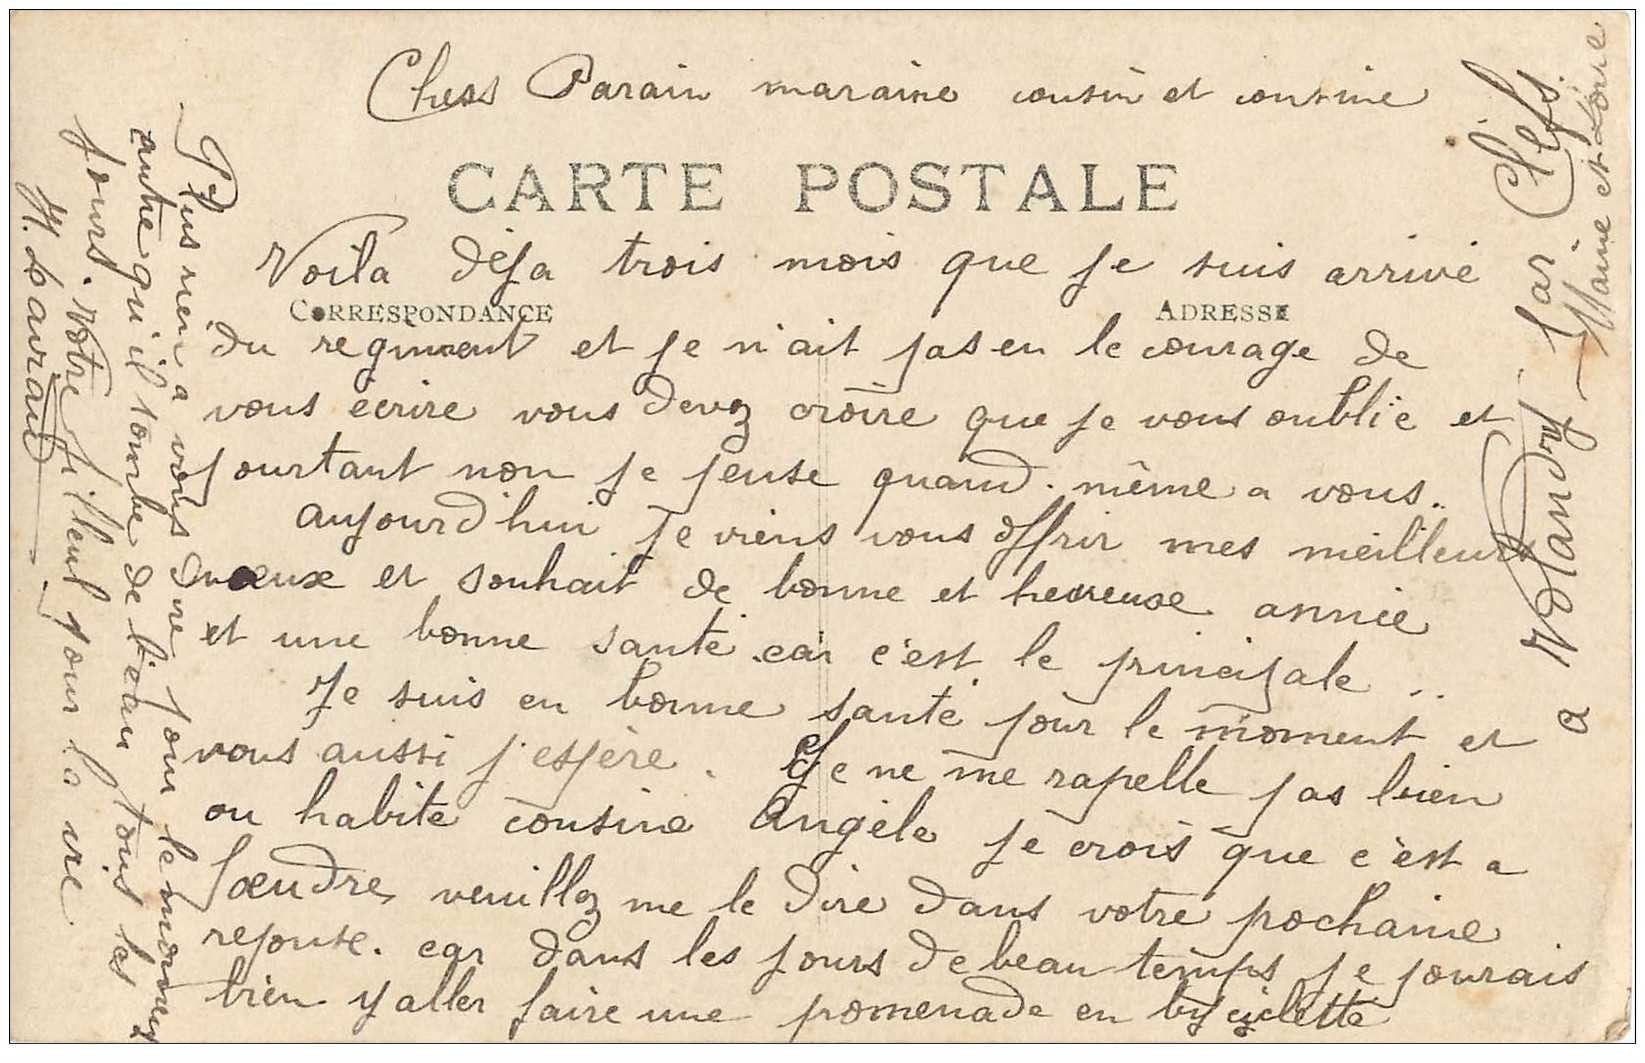 Chers Parain maraine cousin et cousine
CARTE POSTALE
Voila déja trois mois que je suis arrivé
CORRESPONDANCE
ADRESSE
du regiment et je n'ait pas eu le courage de
vous écrire vous devez croire que je vous oublie et
pourtant non je pense quand. même a vous..
aujourd'hui je viens vous offrir mes meilleurs
voeux et souhait de bonne et heureuse année
et une bonne santé car c'est le principale ..
Je suis en bonne santé pour le moment et
vous aussi j'espère. Je ne me rapelle pas bien
ou habite cousine Angèle je crois que c'est a
veuillez me le dire dans votre prochaine
reponse. car dans les jours de beau temps je pourais
bien y aller faire une promenade en byciclette
Plus rien a vous dire pour le moment
autre qu'il tombe de l'eau tous les
jours. Votre filleul pour la vie
H. Lavraud
a Volandry par Clefs.
Maine et Loire